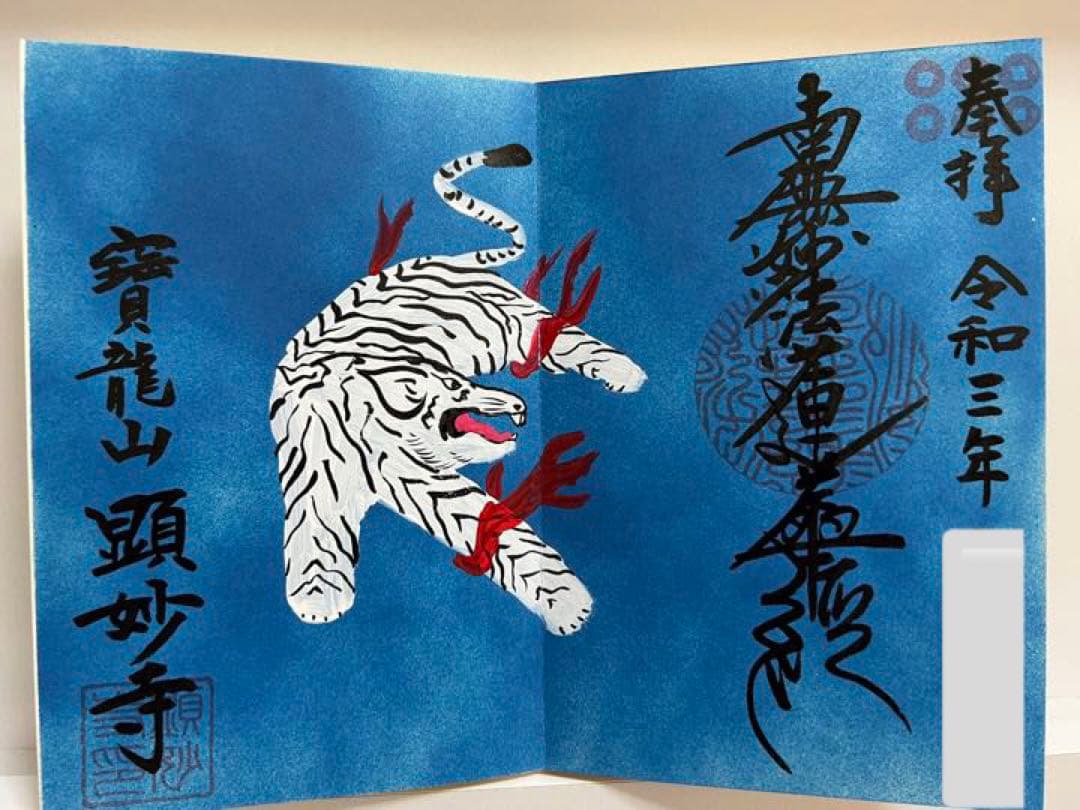 奉拝 令和三年
南無妙法蓮華経
寳龍山 顕妙寺